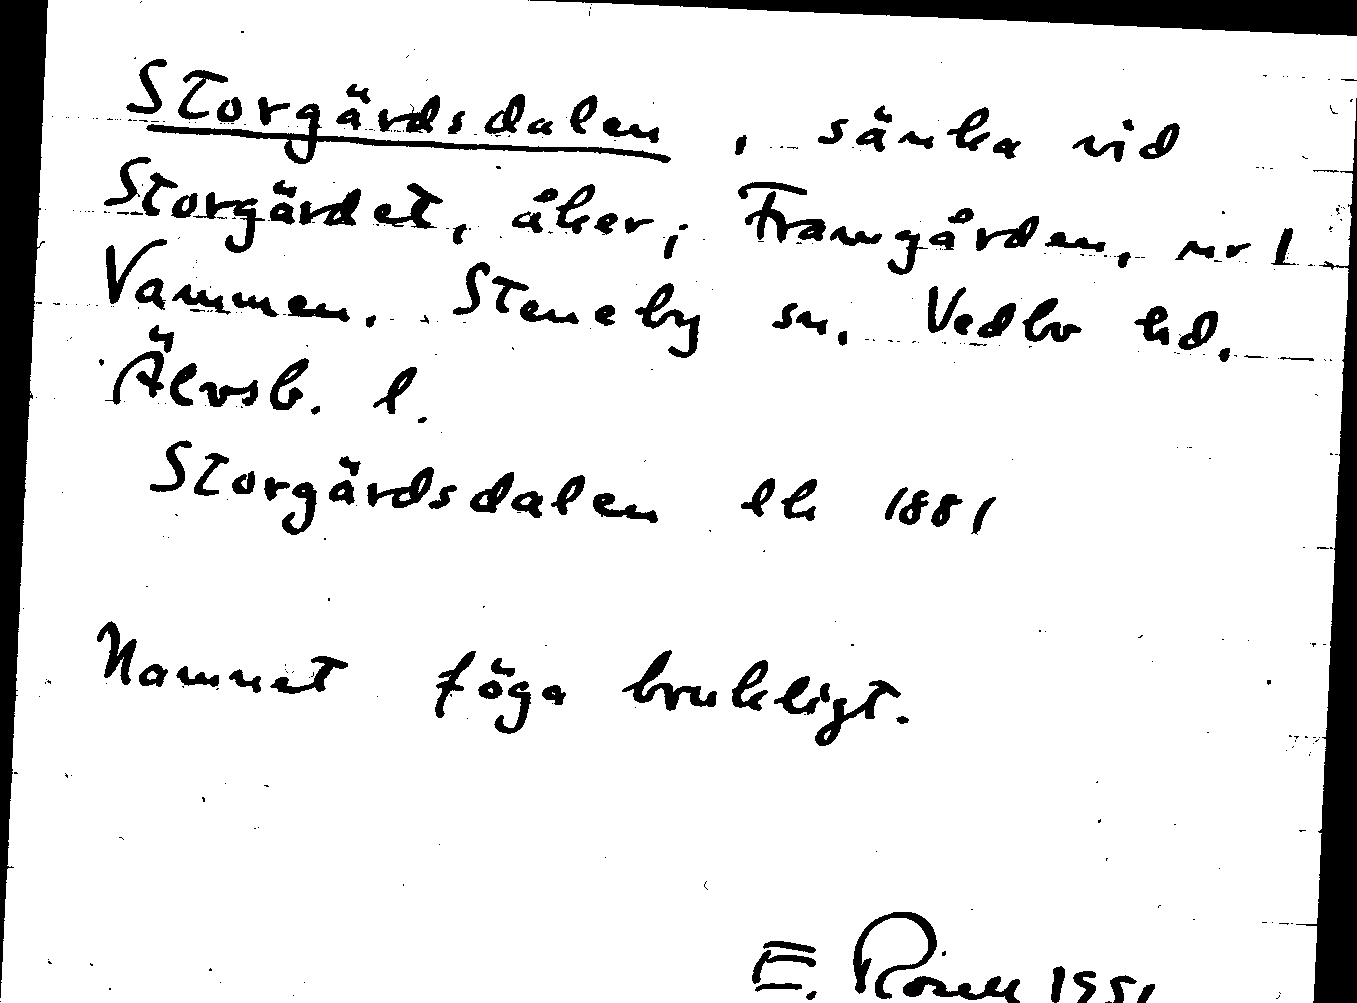 Storgärdsdalen, sänka vid
Storgärdet, åker, Framgården, nr 1
Vammen. Steneby sn. Vedbo hd.
Älvsb. l.
Storgärdsdalen lk 1881
Namnet föga brukligt.
E. Rosell 1951